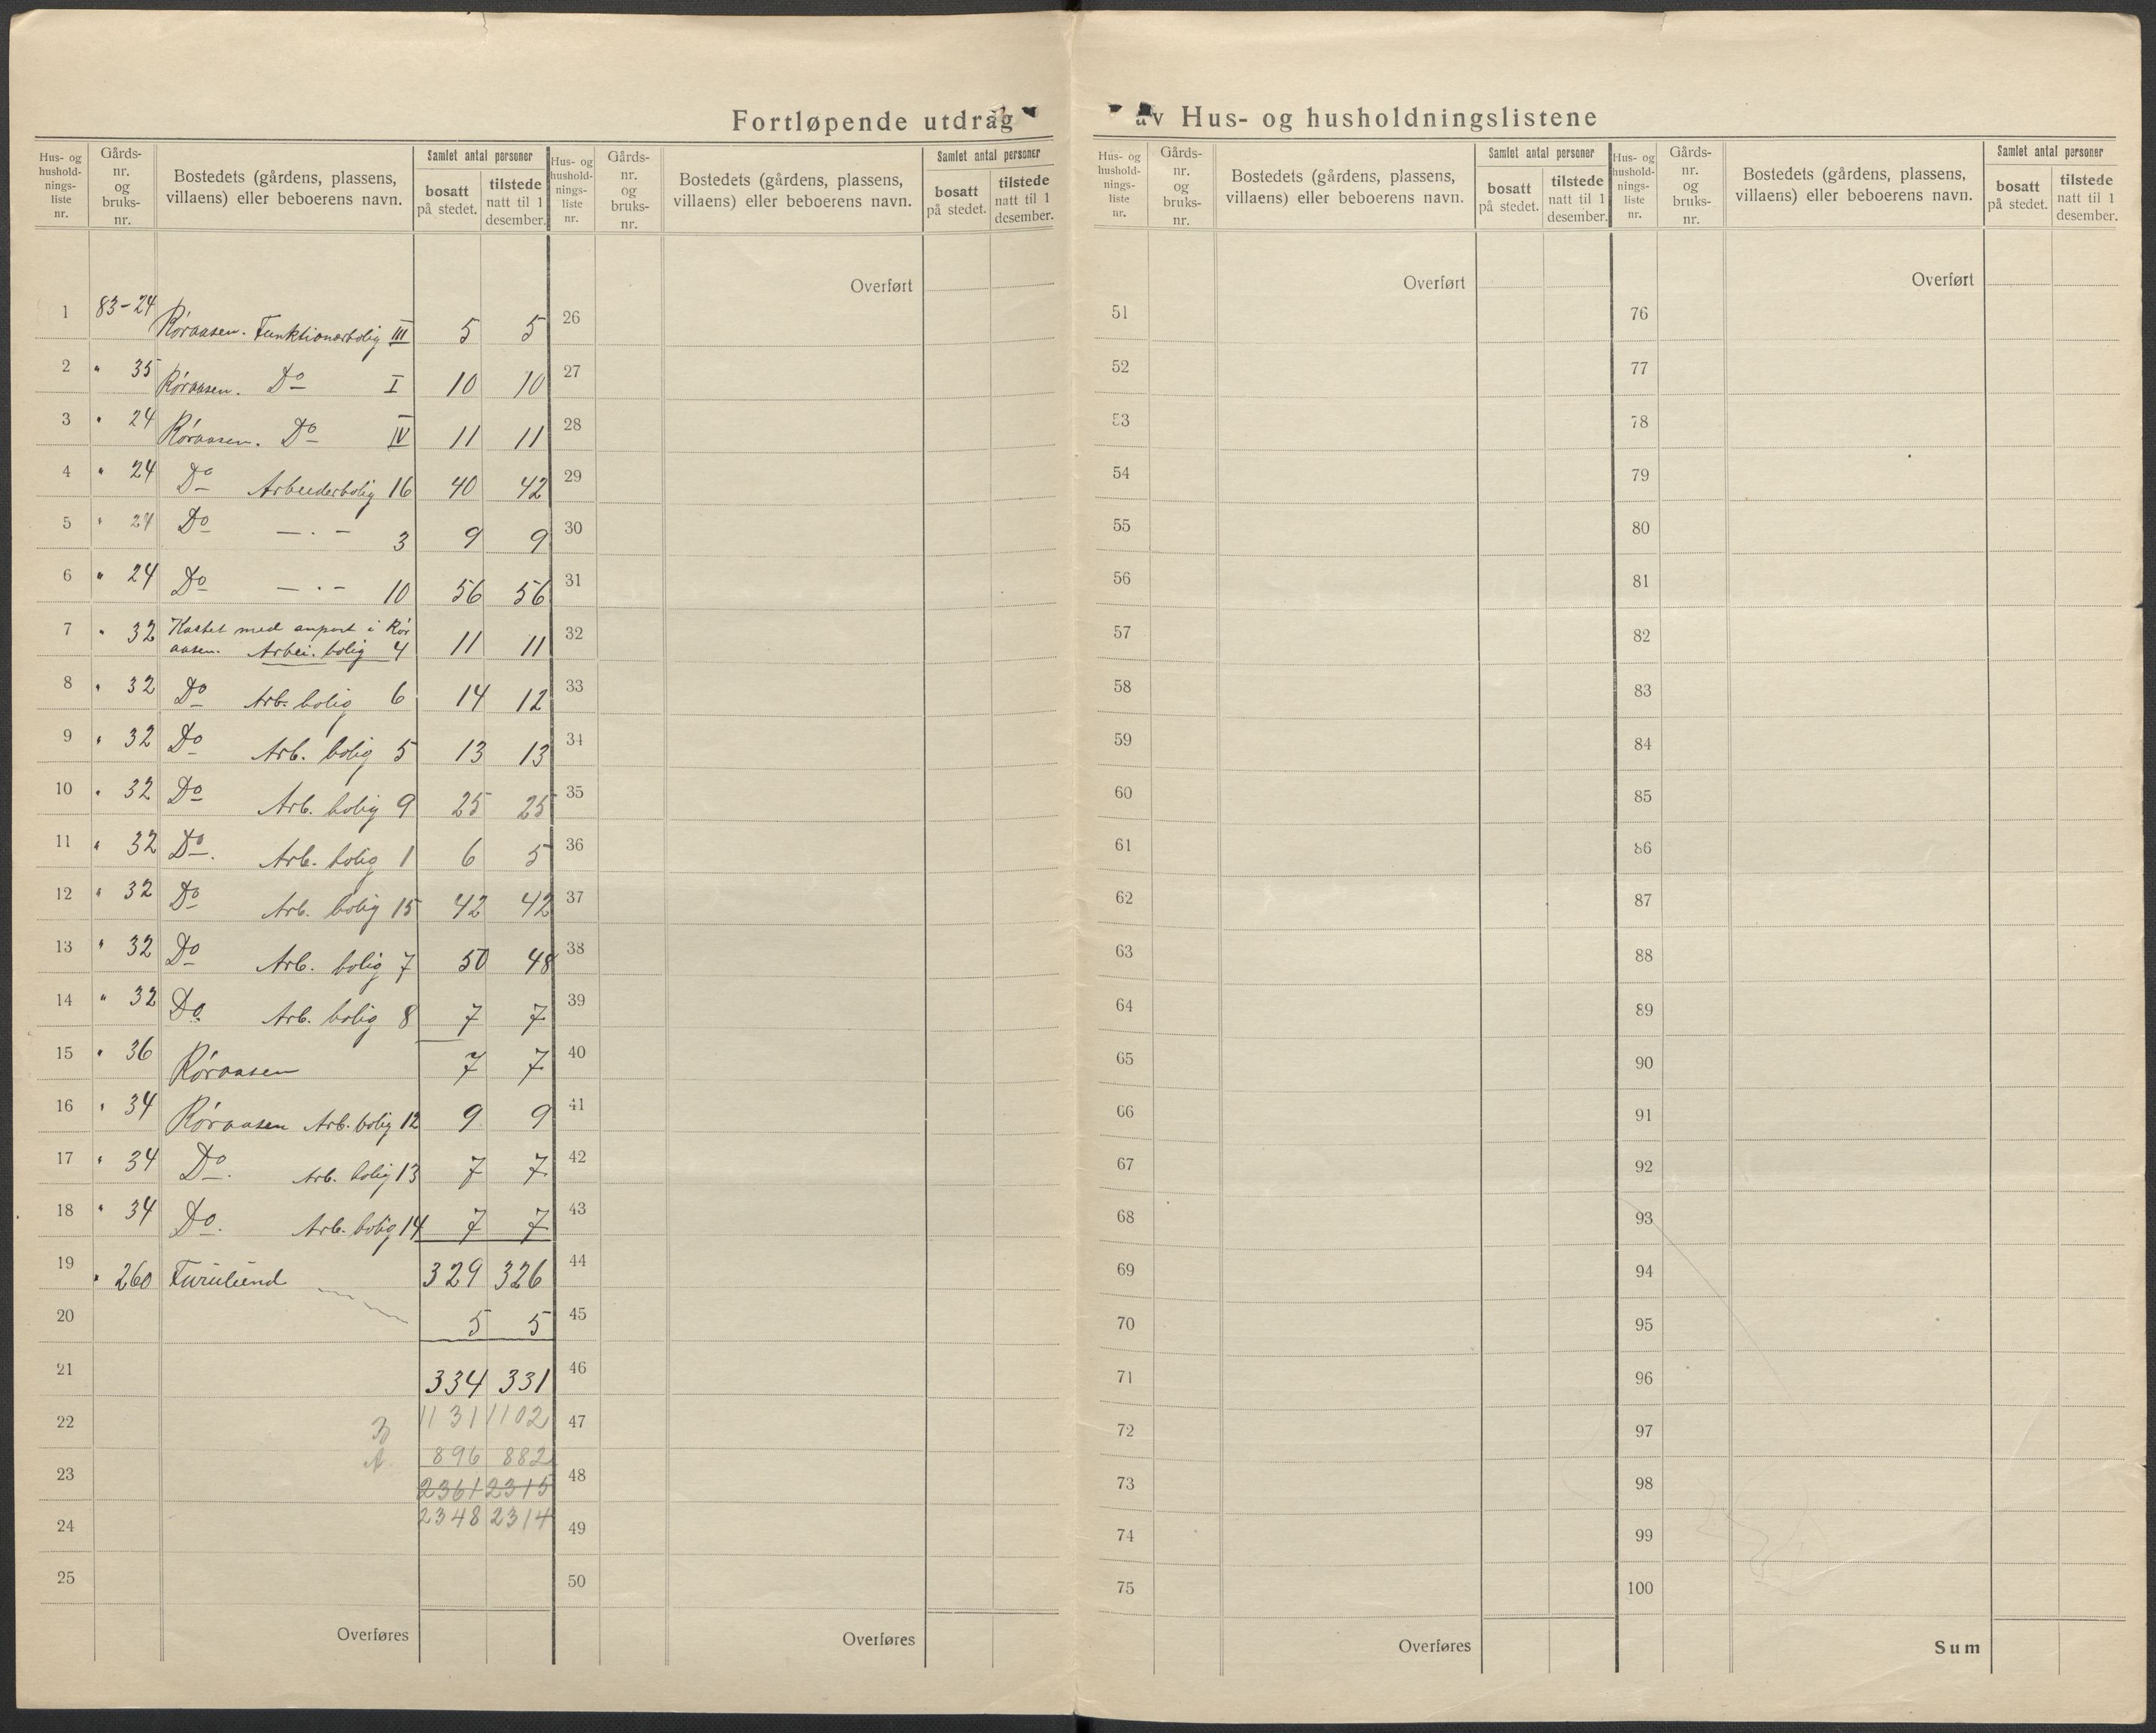 Fortløpende utdrag av Hus- og husholdningslistene
Hus- og hushold-nings-liste nr. | Gårds-nr. og bruks-nr. | Bostedets (gårdens, plassens, villaens) eller beboerens navn. | Samlet antal personer | bosatt på stedet. | tilstede natt til 1 desember.
Hus- og hushold-nings-liste nr. | Gårds-nr. og bruks-nr. | Bostedets (gårdens, plassens, villaens) eller beboerens navn. | Samlet antal personer | bosatt på stedet. | tilstede natt til 1 desember.
Hus- og hushold-nings-liste nr. | Gårds-nr. og bruks-nr. | Bostedets (gårdens, plassens, villaens) eller beboerens navn. | Samlet antal personer | bosatt på stedet. | tilstede natt til 1 desember.
Hus- og hushold-nings-liste nr. | Gårds-nr. og bruks-nr. | Bostedets (gårdens, plassens, villaens) eller beboerens navn. | Samlet antal personer | bosatt på stedet. | tilstede natt til 1 desember.
1 83-24 Røraasen. Funktionærbolig III 5 5
2 " 35 Røraasen. Do I 10 10
3 " 24 Røraasen. Do IV 11 11
4 " 24 Do Arbeiderbolig 16 40 42
5 " 24 Do — . — 3 9 9
6 " 24 Do — . — 10 56 56
7 " 32 Kastet med anpart i Rør
aasen. Arbei. bolig 4 11 11
8 " 32 Do Arb. bolig 6 14 12
9 " 32 Do Arb. bolig 5 13 13
10 " 32 Do Arb. bolig 9 25 25
11 " 32 Do. Arb. bolig 1 6 5
12 " 32 Do Arb. bolig 15 42 42
13 " 32 Do Arb. bolig 7 50 48
14 " 32 Do Arb. bolig 8 7 7
15 " 36 Røraasen 7 7
16 " 34 Røraasen Arb. bolig 12 9 9
17 " 34 Do. Arb. bolig 13 7 7
18 " 34 Do. Arb. bolig 14 7 7
19 " 260 Furulund 329 326
20 5 5
21 334 331
22 B 1131 1102
A 896 882
23 2361 2315
24 2348 2314
25
Overføres
Overført
26
27
28
29
30
31
32
33
34
35
36
37
38
39
40
41
42
43
44
45
46
47
48
49
50
Overføres
Overført
51
52
53
54
55
56
57
58
59
60
61
62
63
64
65
66
67
68
69
70
71
72
73
74
75
Overføres
Overført
76
77
78
79
80
81
82
83
84
85
86
87
88
89
90
91
92
93
94
95
96
97
98
99
100
Sum